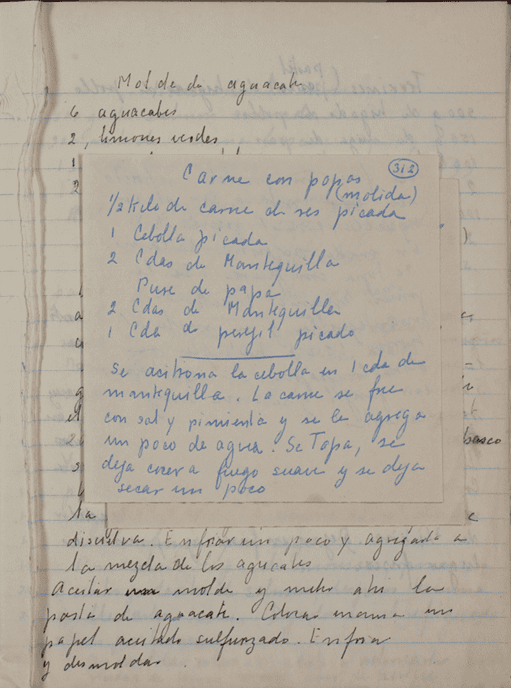 Molde de aguacate
6 aguacates
2 limones verdes
1
2
312
Carne con papas
(molida)
1/2 kilo de carne de res picada
1 Cebolla picada
2 Cdas de Mantequilla
Pure de papa
2 Cdas de Mantequilla
1 Cda de perejil picado
Se acitrona la cebolla en 1 cda de
mantequilla. La carne se frie
con sal y pimienta y se le agrega
un poco de agua. Se Tapa, se
deja cocer a fuego suave y se deja
secar un poco
basco
la
disuelva. Enfriar un poco y agregarla a
la mezcla de los aguacates
Aceitar molde y meter ahi la
pasta de aguacate. encima un
papel aceitado sulfurizado. Enfriar
y desmoldar